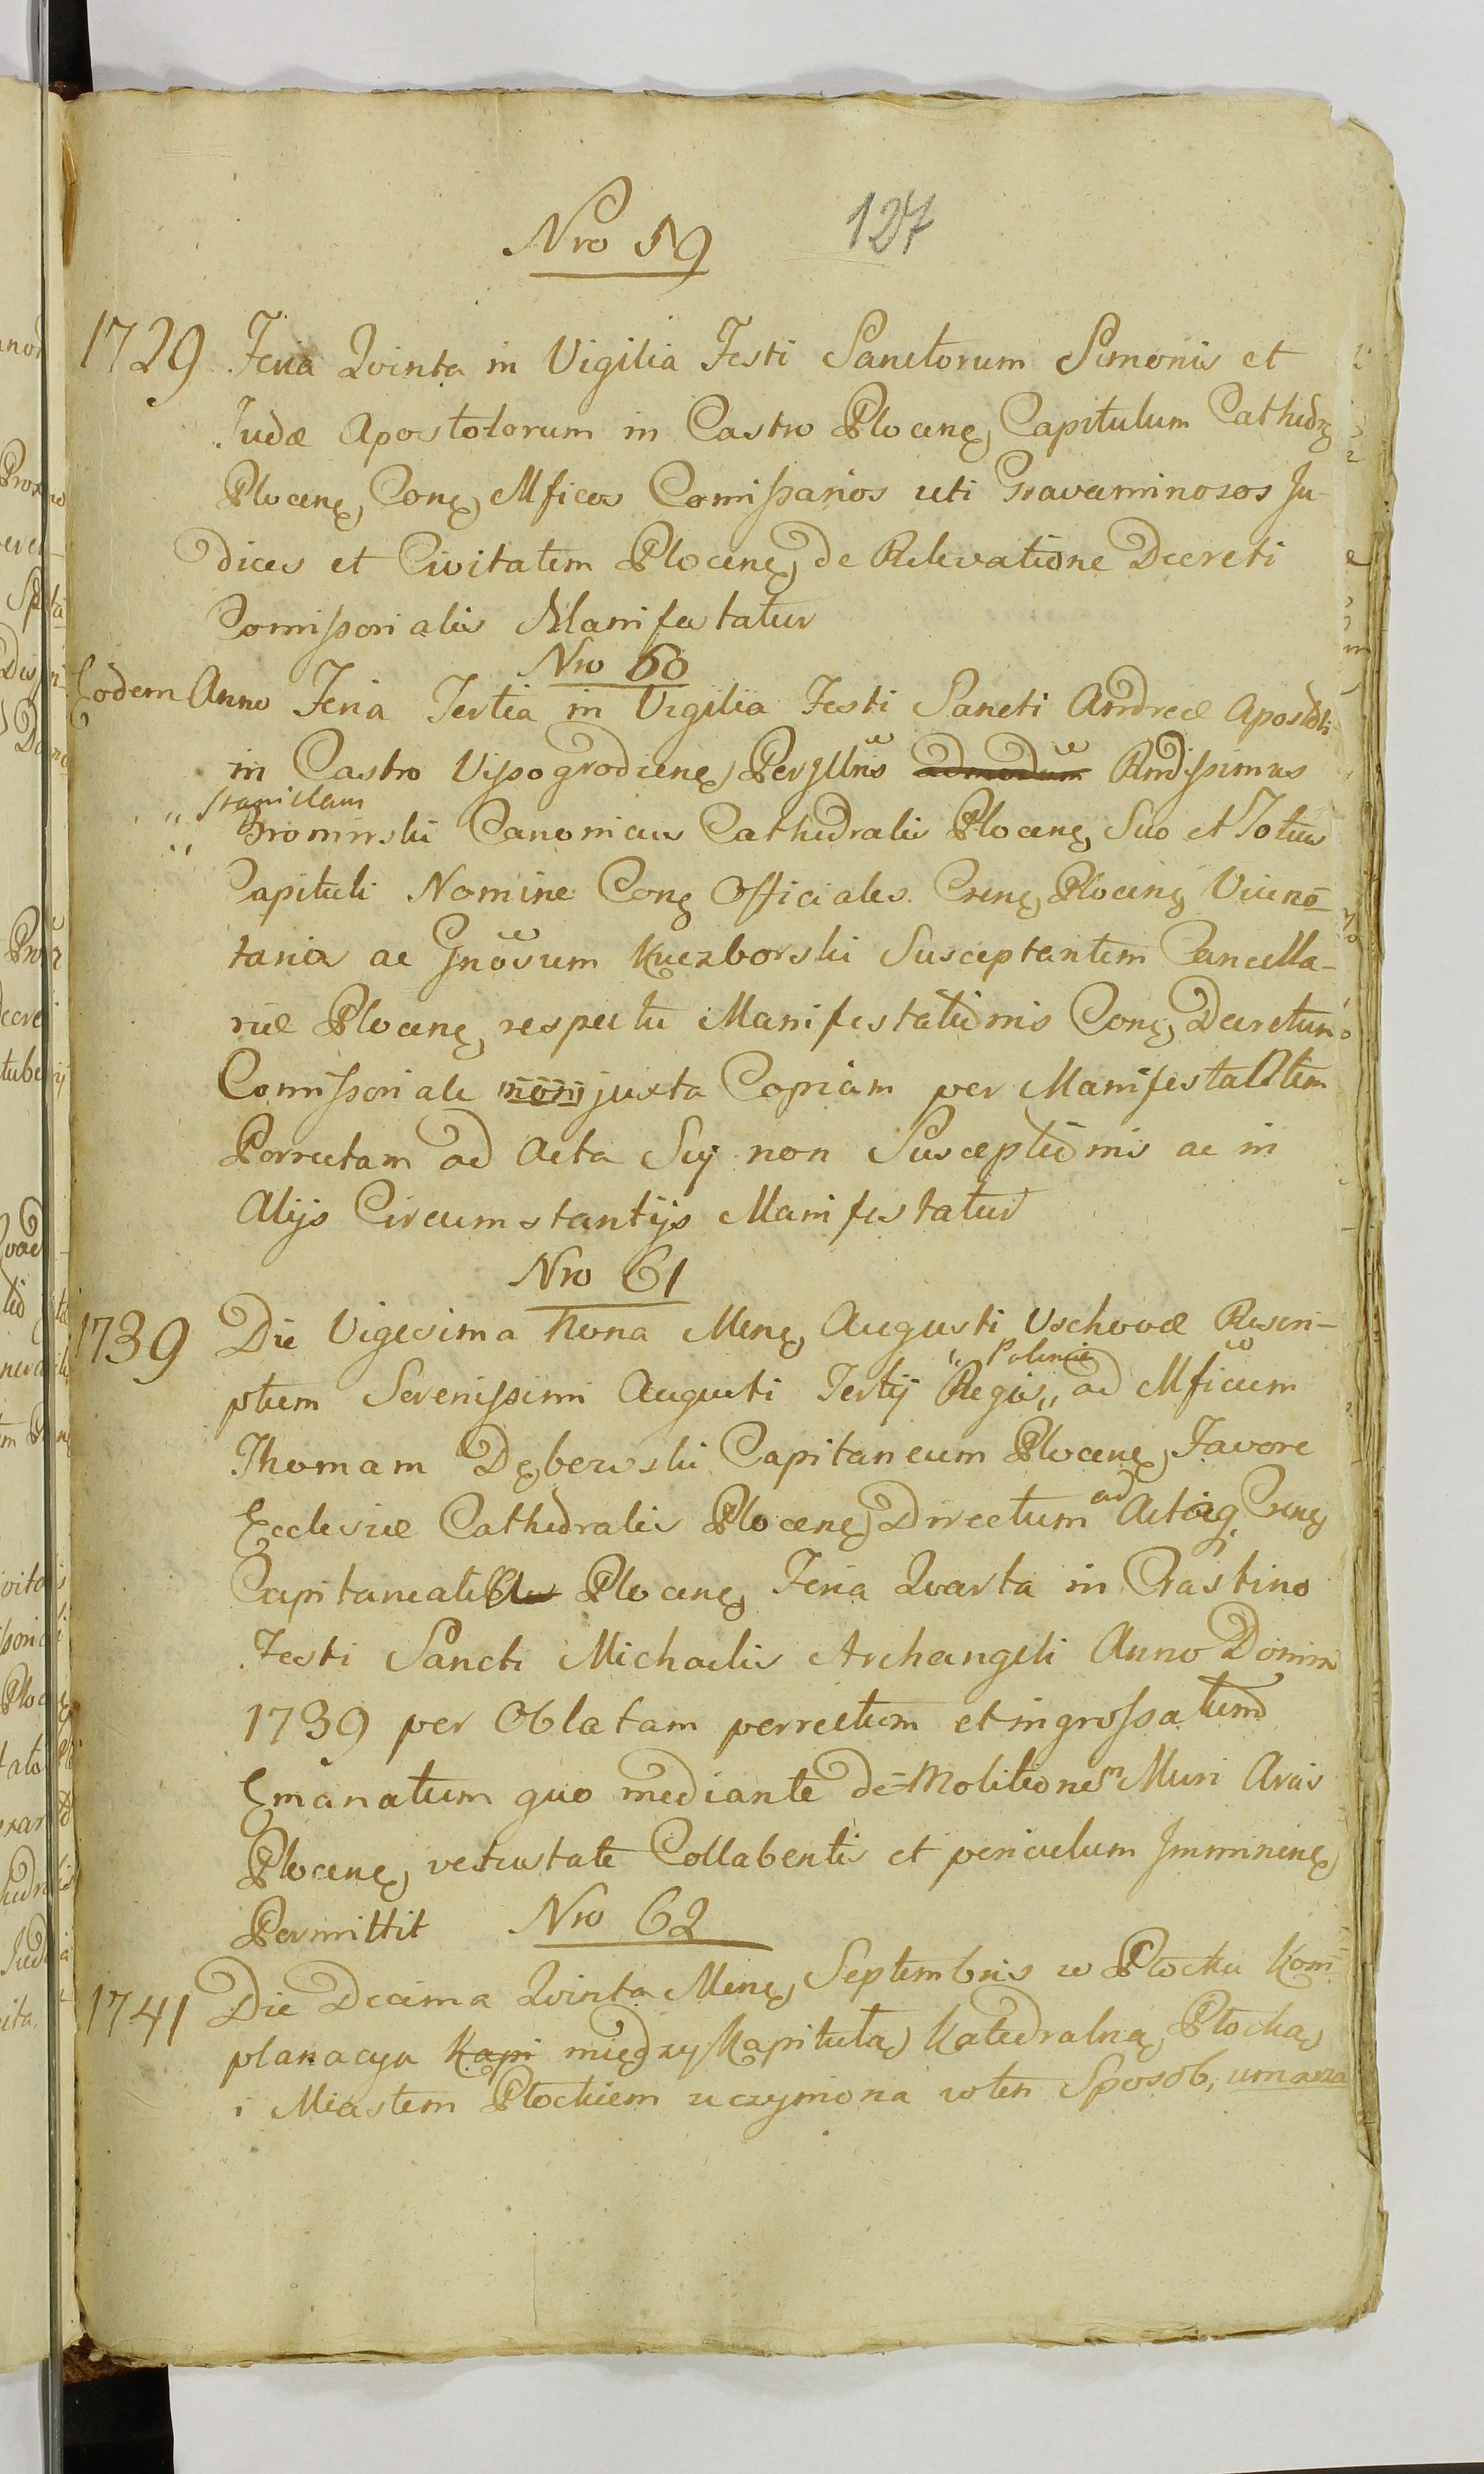 Nro 59 127
1729 Feria Qvinta in Vigilia Festi Sanctorum Simonis et
Judæ Apostolorum in Castro Plocenę Capitulum Cathedrę
Plocenę Conę Mficos Comißarios uti Gravaminosos Ju-
dices et Civitatem Plocenę de Relevatione Decreti
Comißorialis Manifestatur
Nro 60
Eodem Anno Feria Tertia in Vigilia Festi Sancti Andreæ Apostoli
in Castro Vißogrodienę Perjllris admodum Rndißimus
„ Stanislaus
„ Gromirski Canonicus Cathedralis Plocenę Suo et Totius
Capituli Nomine Conę Officiales Crenę Plocenę Viceno-
tarios ac Gnosum Kuczborski Susceptantem Cancella-
riæ Plocenę respectu Manifestationis Conę Decretum
Comißoriale non juxta Copiam per Manifestantem
Porrectam ad Acta Sij non Susceptionis ac in
Alijs Circumstantijs Manifestatur
Nro 61
1739 Die Vigesima Nona Menę Augusti Vschovæ Rescri-
„ Poloniæ
ptum Serenißimi Augusti Tertij Regis „ ad Mficum
Thomam Dębowski Capitaneum Plocenę Favore
Ecclesiæ Cathedralis Plocenę Directum ad Actaq Crenę
Capitaneatus Plocenę Feria Qvarta in Crastino
Festi Sancti Michaelis Archangeli Anno Domini
1739 per Oblatam porrectum et ingroßatum
Emanatum quo mediante de=Molitionem Muri Arcis
Plocenę vetustate Collabentis et periculum Jmminenę
Permittit Nro 62
1741 Die Decima Qvinta Menę Septembris w Płocku Kom-
planacya Kapi między Kapitułą Katedralną Płocką
i Miastem Płockiem uczyniona w ten Sposob, umarza